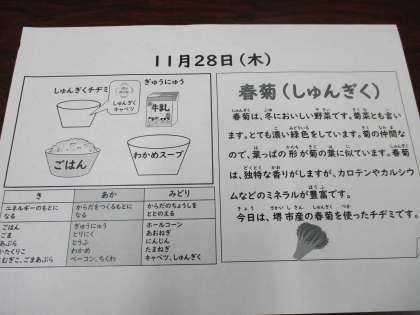 11月28日(木)
しゅんぎくチヂミ
しゅんぎく
キャベツ
ぎゅうにゅう
牛乳
ごはん
わかめスープ
き
あか
みどり
エネルギーのもとに
なる
からだをつくるもとに
なる
からだのちょうしを
ととのえる
ごはん
ごま
あぶら
かたくりこ
こむぎこ、ごまあぶら
ぎゅうにゅう
とりにく
とうふ
わかめ
ベーコン、ちくわ
ホールコーン
あおねぎ
にんじん
たまねぎ
キャベツ、しゅんぎく
春菊(しゅんぎく)
春菊は、冬においしい野菜です。菊菜とも言い
ます。とても濃い緑色をしています。菊の仲間な
ので、葉っぱの形が菊の葉に似ています。春菊
は、独特な香りがしますが、カロテンやカルシウ
ムなどのミネラルが豊富です。
今日は、堺市産の春菊を使ったチヂミです。